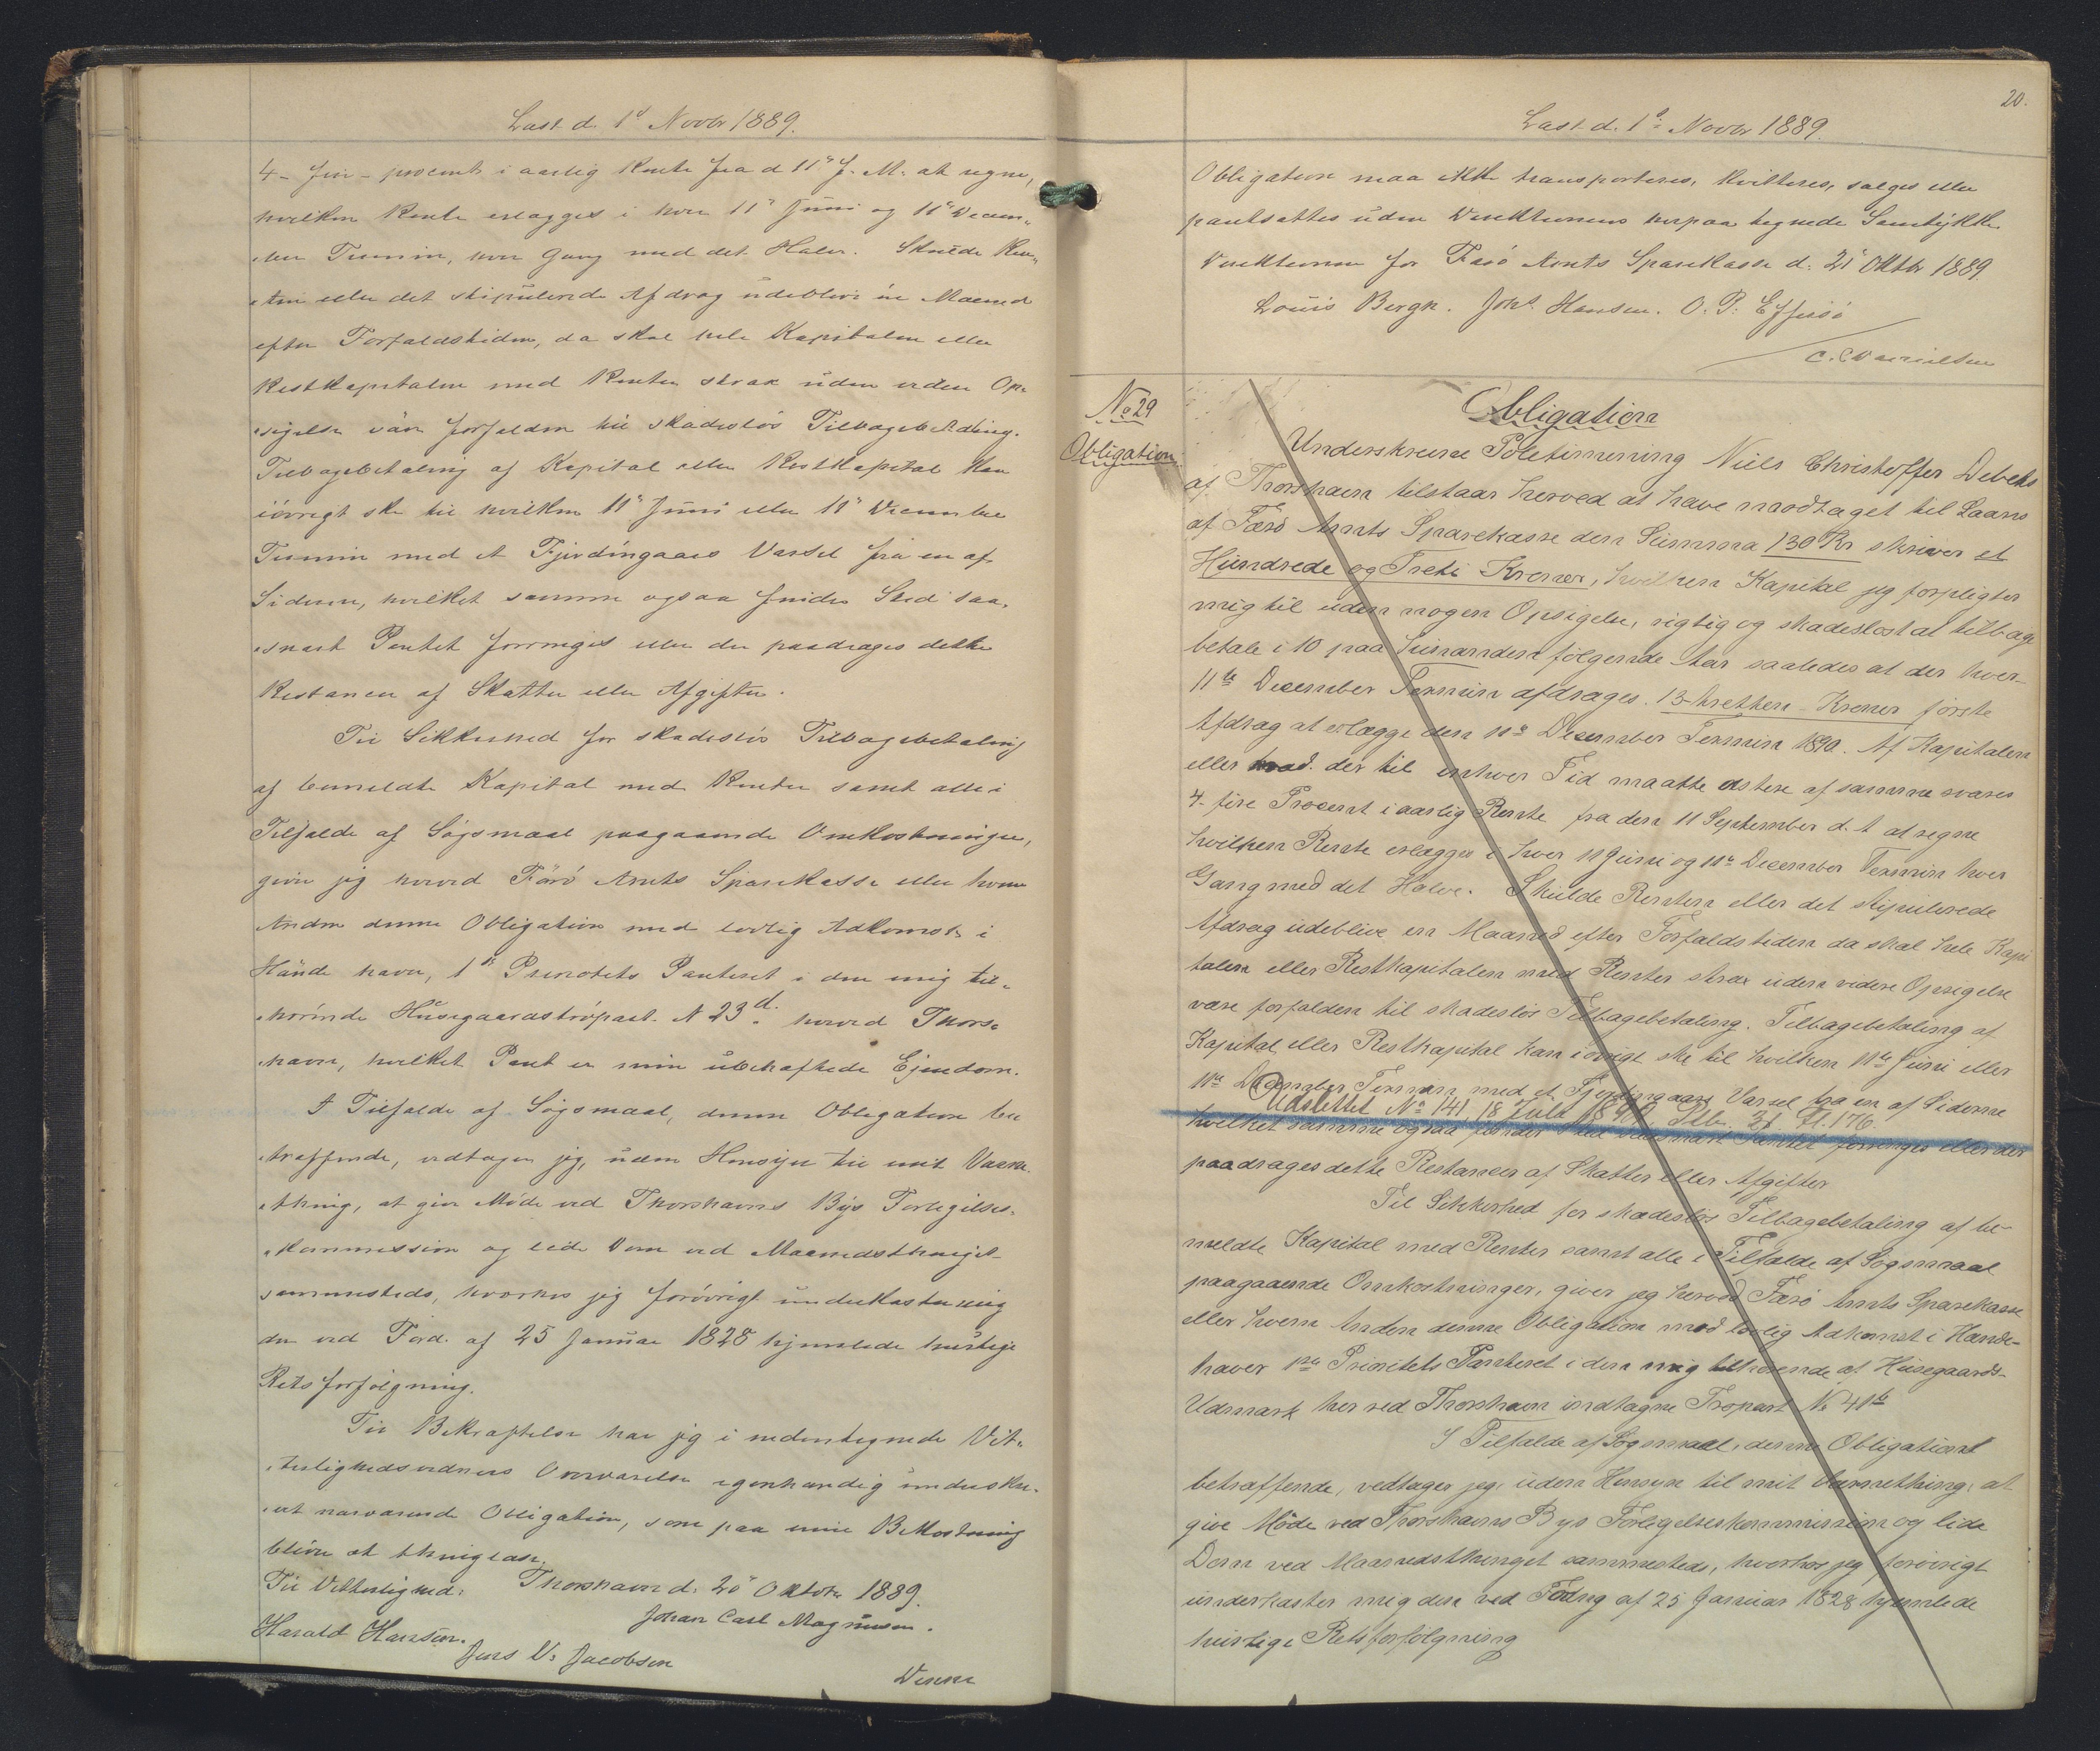 Læst d. 1ᵗ Novbr 1889.
4 - fire - procent i aarlig Rente fra d 11" f. M. at regne,
hvilken Rente erlægges i hver 11" Juni og 11" Decem-
ber Termin, hver Gang med det Halve. Skulde Ren-
ten eller det stipulerede Afdrag udeblive en Maaned
efter Forfaldstiden, da skal hele Kapitalen eller
Restkapitalen med Renter strax uden viden Op-
sigelse være forfalden til skadesløs Tilbagebetaling.
Tilbagebetaling af Kapital eller Restkapital kan
iøvrigt ske til hvilken 11" Juni eller 11" December
Termin med et Fjerdingaars Varsel fra en af
Siderne, hvilket samme ogsaa finder Sted saa-
snart Pantet forringes eller der paadrages dette
Restancer af Skatter eller Afgifter.
Til Sikkerhed for skadesløs Tilbagebetaling
af bemeldte Kapital med Renter samt alle i
Tilfælde af Søgsmaal paagaaende Omkostninger,
giver jeg herved Færø Amts Sparekasse eller hvem
Anden denne Obligation med lovlig Adkomst i
Hænde haver, 1ᵗᵉ Prioritets Panteret i den mig til-
hørende Husegaardstrøpart N 23ᵈ. herved Thors-
havn, hvilket Pant er min ubehæftede Ejendom.
I Tilfælde af Søgsmaal, denne Obligation be-
træffende, vedtager jeg, uden Hensyn til mit Værne-
thing, at give Møde ved Thorshavns Bys Forligelses-
kommission og lide Dom ved Maanedsthinget
sammesteds, hvorhos jeg forøvrigt underkaster mig
den ved Ford. af 25 Januar 1828 hjemlede hurtige
Retsforfølgning.
Til Bekræftelse har jeg i nedentegnede Vit-
terlighedsvidners Overværelse egenhændig underskre-
vet nærværende Obligation, som paa min Bekostning
bliver at thinglæse.
Thorshavn d. 20" Oktobr 1889.
Til Vitterlighed:
Johan Carl Magnusen.
Harald Hansen.
Jens V. Jacobsen
Denne
20.
Læst d. 1ᵗ Novbr 1889.
Obligation maa ikke transporteres, kvitteres, sælges eller
pantsættes uden Direktionens herpaa tegnede Samtykke
Direktionen for Færø Amts Sparekasse d. 21" Oktbr 1889.
Louis Bergh. Johs. Hansen. O. P. Effersø
C. Danielsen
No 29
Obligation
Obligation
Underskrevne Politimening Niels Christoffer Debes
af Thorshavn tilstaar herved at have modtaget til Laans
af Færø Amts Sparekasse den Summa 130 Kr skriver et
Hundrede og Treti Kroner, hvilken Kapital jeg forpligter
mig til uden nogen Opsigelse, rigtig og skadesløst at tilbage
betale i 10 paa hinanden følgende Aar saaledes at der hver
11te December Termin afdrages 13 - tretten - Kroner første
Afdrag at erlægge den 11te December Termin 1890. Af Kapitalen
eller hvad der til enhver Tid maatte restere af samme svares
4 - fire Procent i aarlig Rente fra den 11 September d. A at regne
hvilken Rente erlægges i hver 11 Juni og 11te December Termin hver
Gang med det Halve. Skulde Renten eller det stipulerede
Afdrag udeblive en Maaned efter Forfaldstiden da skal hele Kapi
talen eller Restkapitalen med Renter strax uden videre Opsigelse
være forfalden til skadesløs Tilbagebetaling. Tilbagebetaling af
Kapital eller Restkapital kan iøvrigt ske til hvilken 11te Juni eller
11te December Termin med et Fjerdingaars Varsel fra en af Siderne
Udslettet No 141, 18 Juli 1890, Ptb. Fl. 176
hvilket samme ogsaa finder Sted saasnart Pantet forringes eller der
paadrages dette Restancer af Skatter eller Afgifter
Til Sikkerhed for skadesløs Tilbagebetaling af be-
meldte Kapital med Renter samt alle i Tilfælde af Søgsmaal
paagaaende Omkostninger, giver jeg herved Færø Amts Sparekasse
eller hvem Anden denne Obligation med lovlig Adkomst i Hænde
haver 1te Prioritets Panteret i den mig tilhørende af Husegaards-
Udmark her ved Thorshavn indtagne Trøpart No 41
I Tilfælde af Søgsmaal, denne Obligation
betræffende, vedtager jeg, uden Hensyn til mit Værnething, at
give Møde ved Thorshavns Bys Forligelseskommission og lide
Dom ved Maanedsthinget sammesteds, hvorhos jeg forøvrigt
underkaster mig den ved Fordng af 25 Januar 1828 hjemlede
hurtige Retsforfølgning